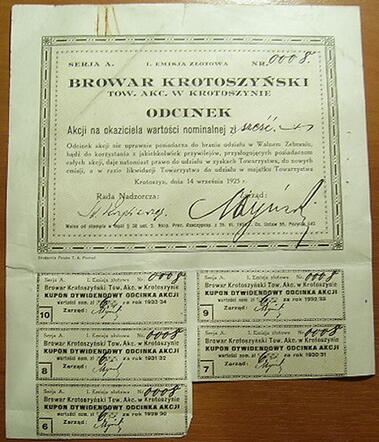 SERJA A. I. EMISJA ZŁOTOWA NR. 0008.
BROWAR KROTOSZYŃSKI
TOW. AKC. W KROTOSZYNIE
ODCINEK
Akcji na okaziciela wartości nominalnej zł sześć.
Odcinek akcji nie uprawnia posiadacza do brania udziału w Walnem Zebraniu,
bądź do korzystania z jakichkolwiek przywilejów, przysługujących posiadaczom
całych akcji, daje natomiast prawo do udziału w zyskach Towarzystwa, do nowych
emisji, a w razie likwidacji Towarzystwa do udziału w majątku Towarzystwa
Krotoszyn, dnia 14 września 1925 r.
Rada Nadzorcza: Zarząd:
Wolne od stempla w myśl
Serja A. I. Emisja złotowa Nr. 0008
Browar Krotoszyński Tow. Akc. w Krotoszynie
KUPON DYWIDENDOWY ODCINKA AKCJI
wartości nom. zł za rok 1933/34
Zarząd:
10
Serja A. I. Emisja złotowa Nr. 0008
Browar Krotoszyński Tow. Akc. w Krotoszynie
KUPON DYWIDENDOWY ODCINKA AKCJI
wartości nom. zł za rok 1932/33
Zarząd:
9
Serja A. I. Emisja złotowa Nr. 0008
Browar Krotoszyński Tow. Akc. w Krotoszynie
KUPON DYWIDENDOWY ODCINKA AKCJI
wartości nom. zł za rok 1931/32
Zarząd:
8
Serja A. I. Emisja złotowa Nr. 0008
Browar Krotoszyński Tow. Akc. w Krotoszynie
KUPON DYWIDENDOWY ODCINKA AKCJI
wartości nom. zł za rok 1930/31
Zarząd:
7
Serja A. I. Emisja złotowa Nr. 0008
Browar Krotoszyński Tow. Akc. w Krotoszynie
KUPON DYWIDENDOWY ODCINKA AKCJI
wartości nom. zł za rok 1929/30
Zarząd:
6